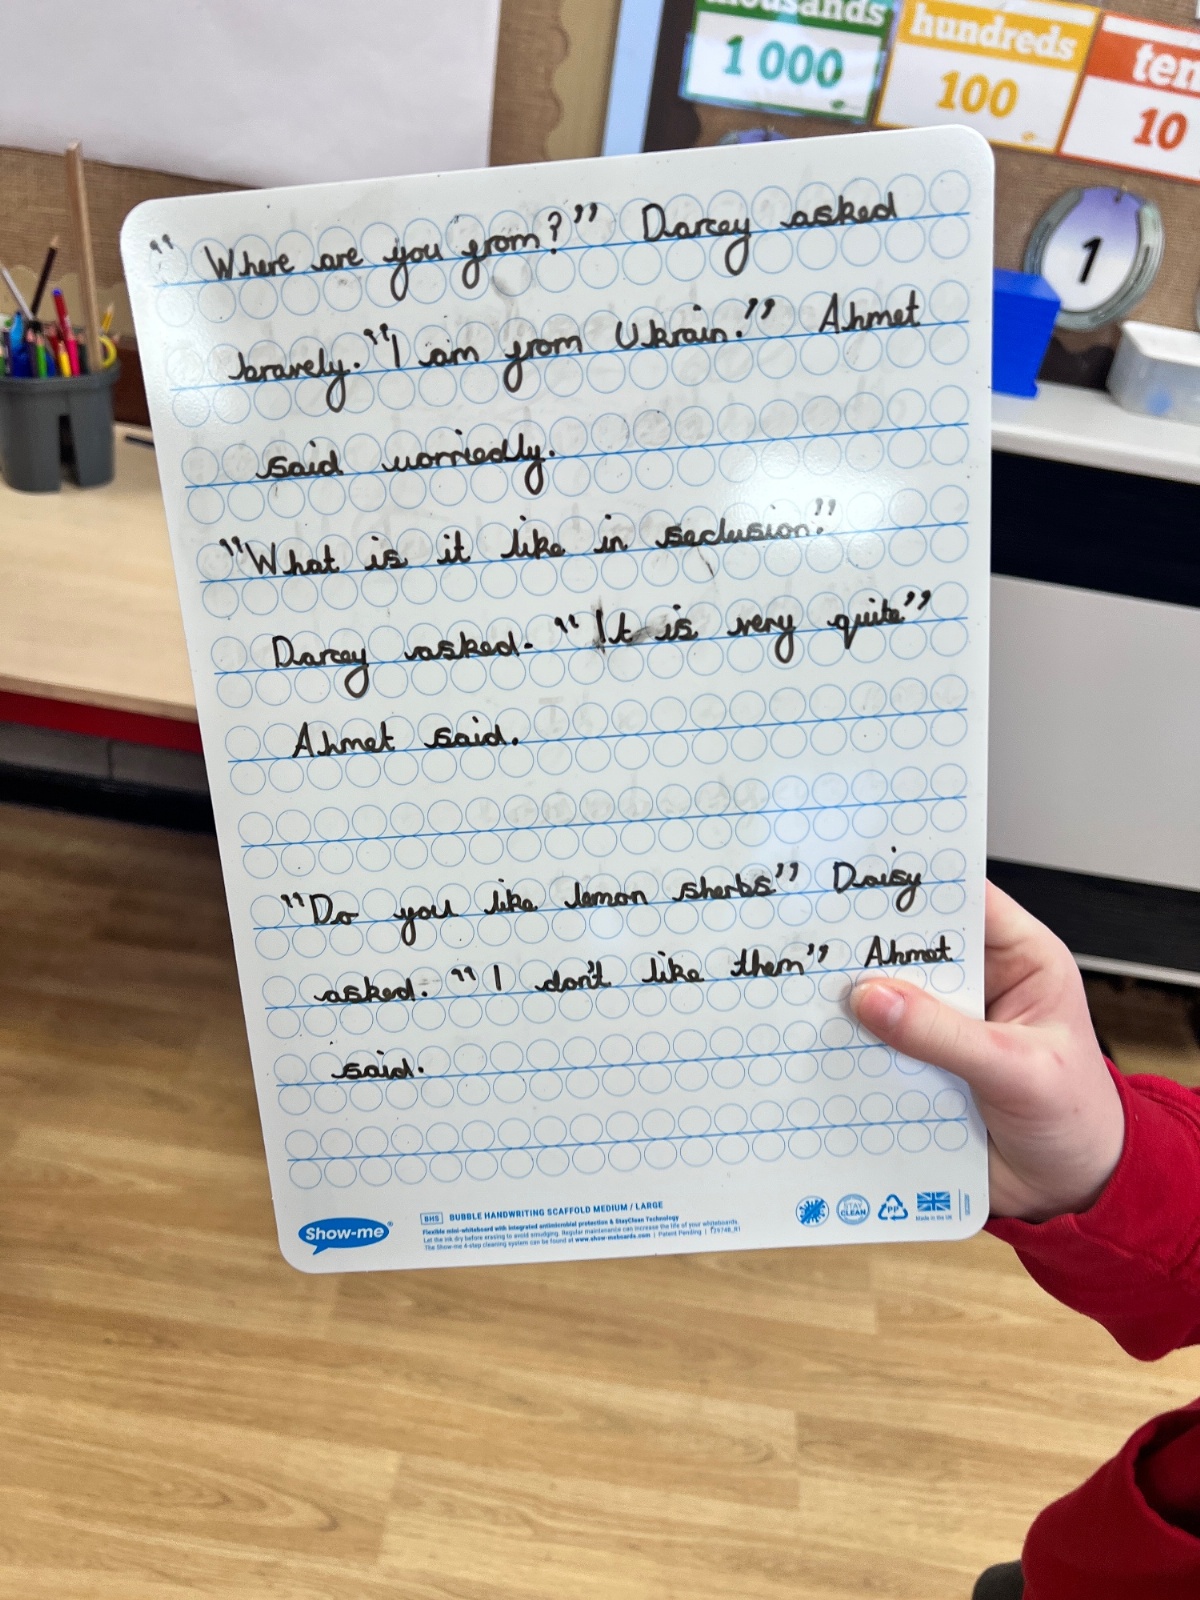 thousands
1 000
hundreds
100
ten
10
1
"Where are you from?" Darcey asked
bravely. "I am from Ukrain." Ahmet
said worriedly.
"What is it like in seclusion."
Darcey asked. "It is very quite"
Ahmet said.
"Do you like lemon sherbs" Daisy
asked. "I don't like them" Ahmet
said.
Show-me
BHS BUBBLE HANDWRITING SCAFFOLD MEDIUM / LARGE
Flexible mini-whiteboard with integrated antimicrobial protection & StayClean Technology
Let the ink dry before erasing to avoid smudging. Regular maintenance can increase the life of your whiteboards.
The Show-me 4-step cleaning system can be found at www.show-meboards.com | Patent Pending
STAY CLEAN
PP
Made in the UK